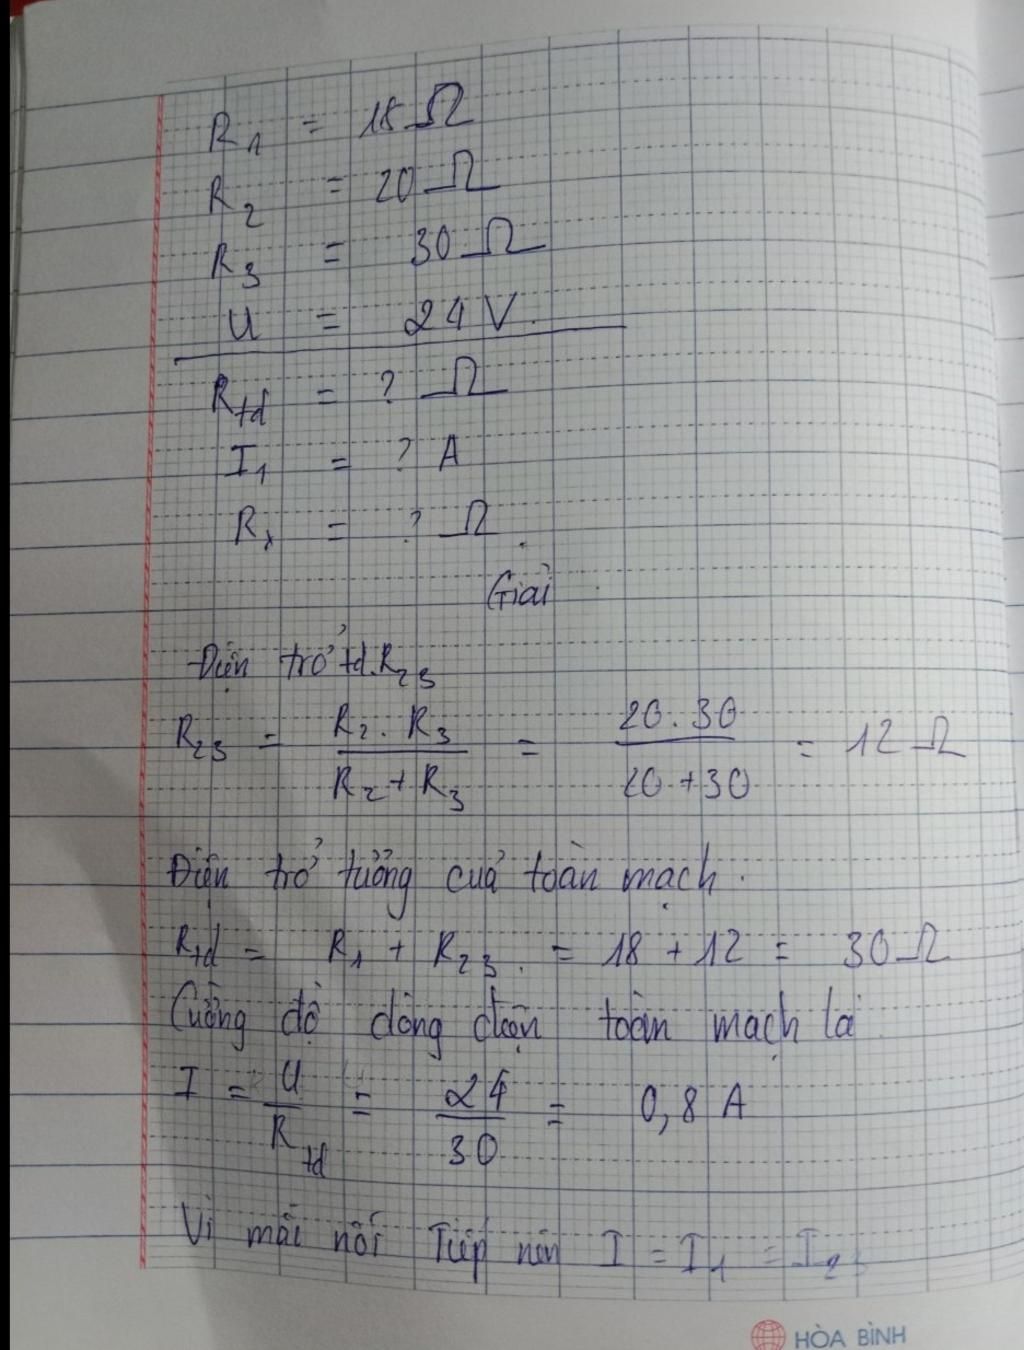 R₁ = 18 Ω
R₂ = 20 Ω
R₃ = 30 Ω
U = 24 V.
R_tđ = ? Ω
I₁ = ? A
Rₓ = ? Ω
Giải
Điện trở tđ.R₂₃
R₂₃ = (R₂ . R₃)/(R₂ + R₃) = (20 . 30)/(20 + 30) = 12 Ω
Điện trở tưởng cuả toàn mạch.
R_tđ = R₁ + R₂₃. = 18 + 12 = 30 Ω
Cường độ dòng điện toàn mạch là
I = U/R_tđ = 24/30 = 0,8 A
Vì mắc nối Tiếp nên I = I₁ = I₂₃
HÒA BÌNH